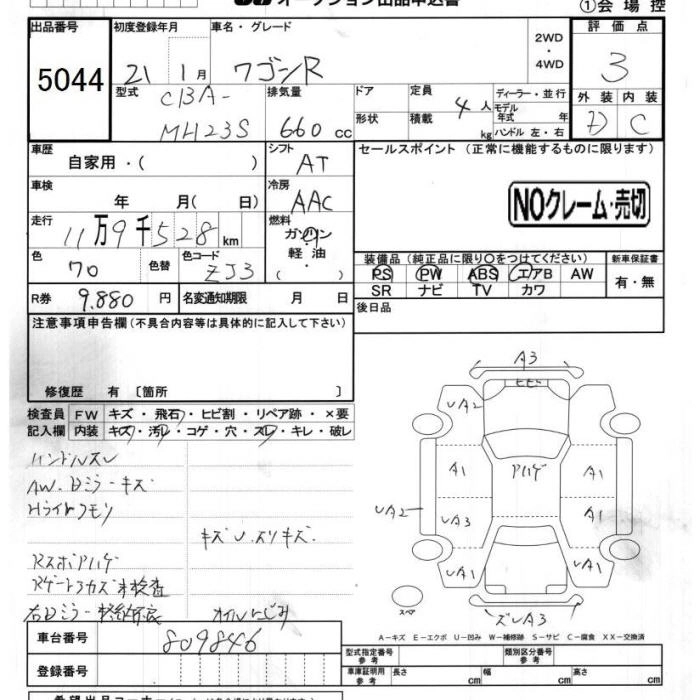 オークション出品申込書
①会場控
出品番号 初度登録年月 車名・グレード 2WD ・4WD 評価点
5044 21 1月 ワゴンR 3
型式 CBA-MH23S 排気量 660 cc ドア 形状 定員 4人 積載 kg
ディーラー・並行 モデル年式 年 ハンドル 左・右
外装 内装
D C
車歴 自家用・( ) シフト AT
セールスポイント (正常に機能するものに限ります)
車検 年 月( 日) 冷房 AAC
NOクレーム・売切
走行 11万9千528km 燃料 ガソリン・軽油・( )
色 70 色替 色コード ZJ3
装備品 (純正品に限り○をつけてください) 新車保証書
PS PW ABS エアB AW 有・無
SR ナビ TV カワ
R券 9,880 円 名変通知期限 月 日
後日品
注意事項申告欄 (不具合内容等は具体的に記入して下さい)
修復歴 有 〔箇所 〕
検査員記入欄 FW キズ・飛石・ヒビ割・リペア跡・×要
内装 キズ・汚レ・コゲ・穴・スレ・キレ・破レ
ハンドルスレ
AW.Dミラーキズ
Hライトクモリ
キズU.スリキズ.
RスポAハゲ
未検査
右Dミラー格納不良 オイルにじみ
A3
ヒビ
UA2
A1 Aハゲ A1
UA2 UA3 A1
UA1 UA1
スペア
ズレA3
A-キズ E-エクボ U-凹み W-補修跡 S-サビ C-腐食 XX-交換済
車台番号 809846
登録番号
型式指定番号 参考 類別区分番号 参考
車庫証明用 参考 長さ cm 幅 cm 高さ cm
希望出品コーナー